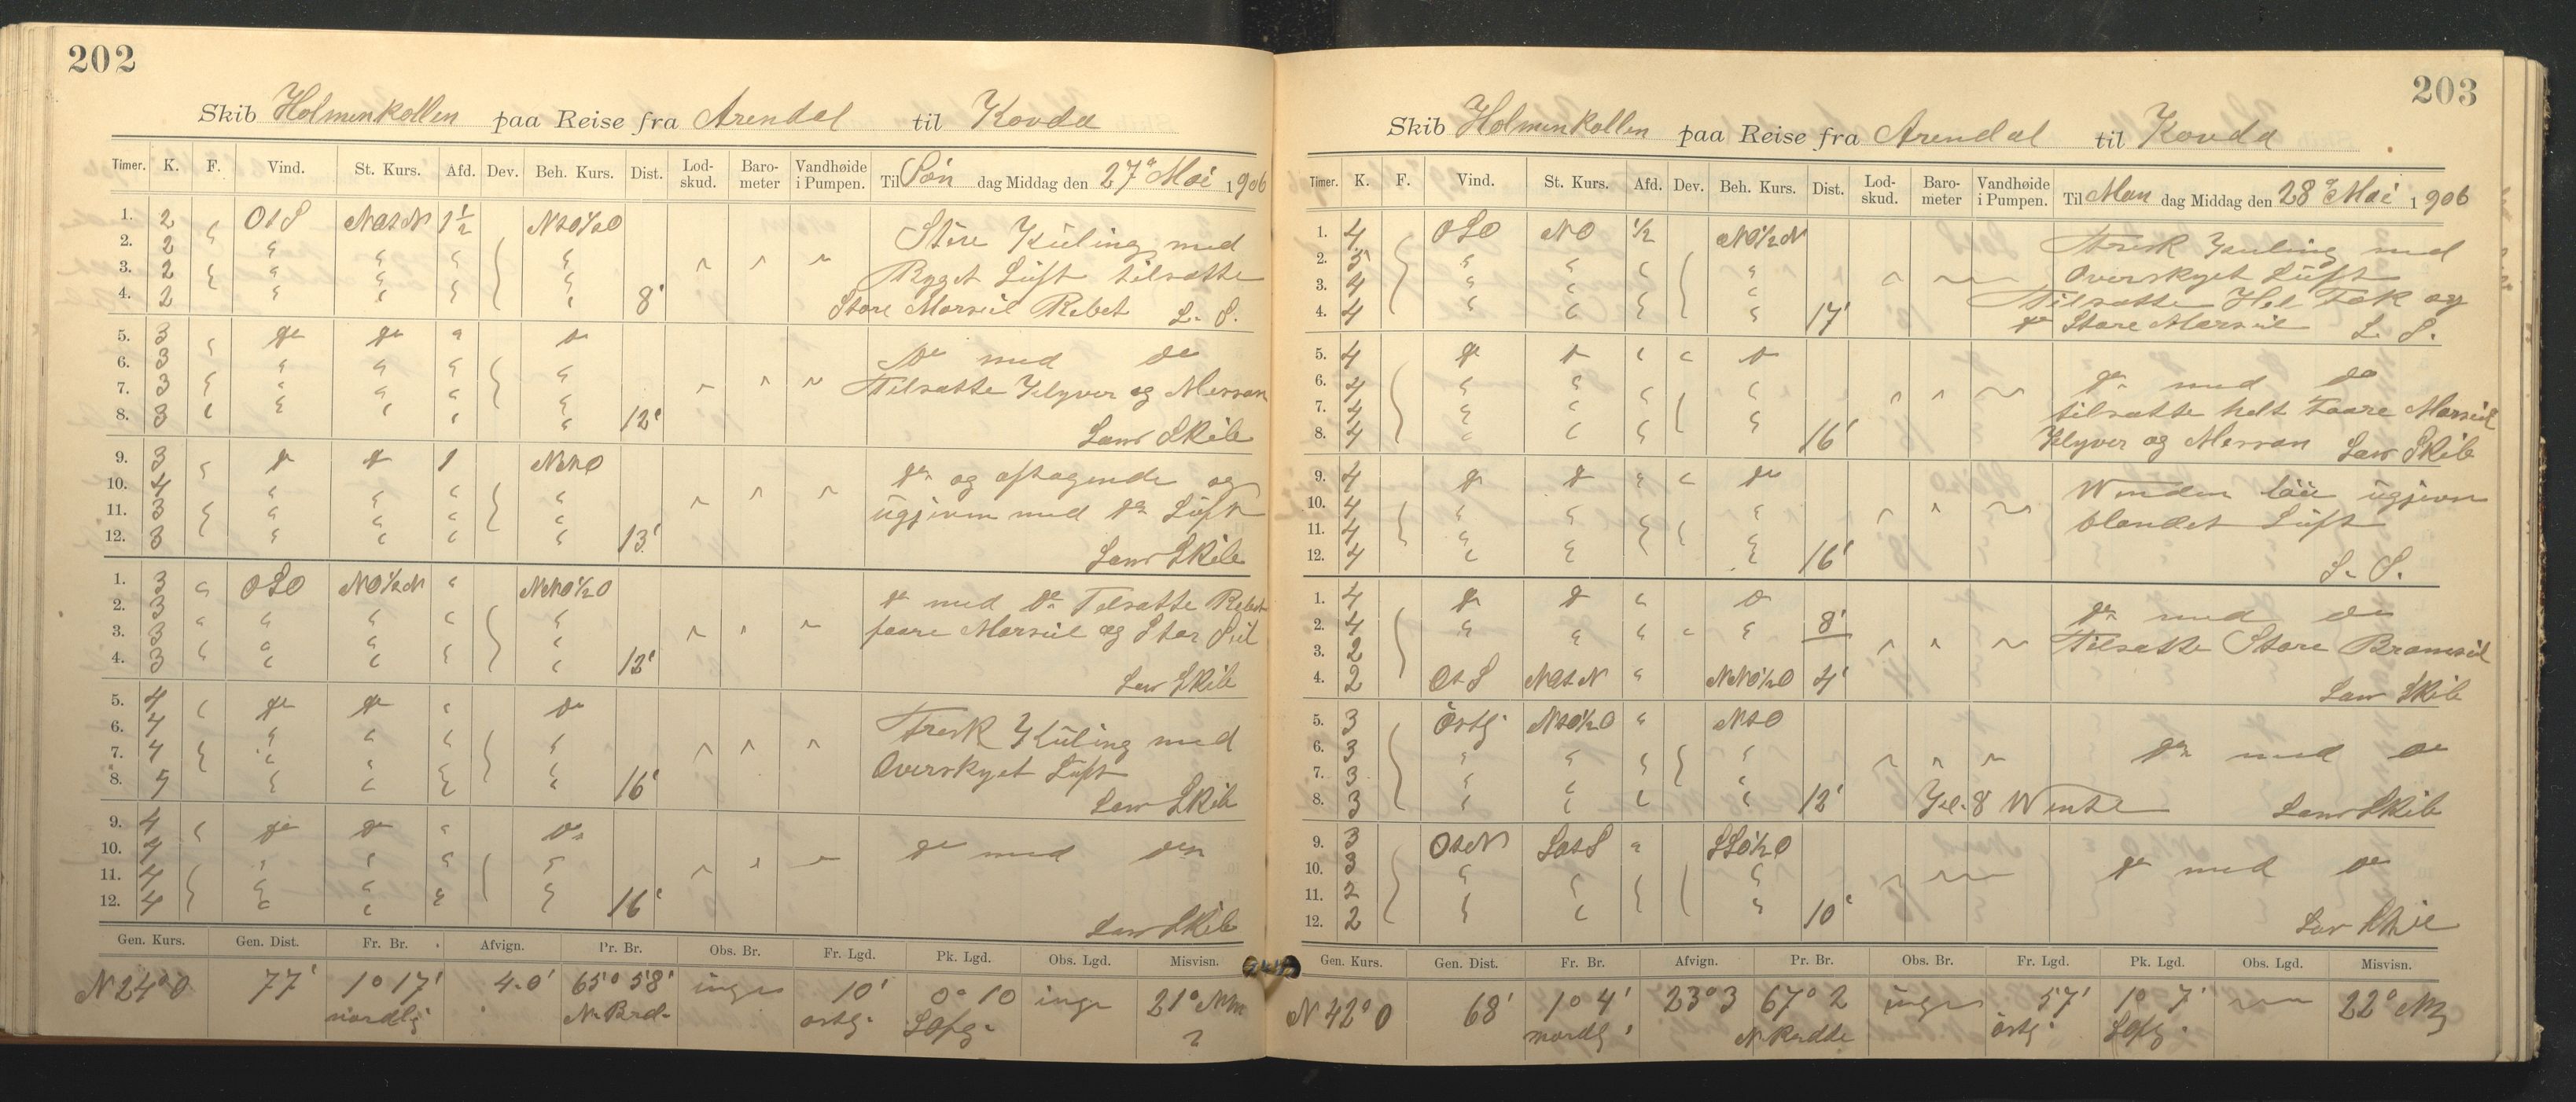 202
Skib Holmenkollen paa Reise fra Arendal til Kovda
Timer. K. F. Vind. St. Kurs. Afd. Dev. Beh. Kurs. Dist. Lod-skud. Baro-meter Vandhøide i Pumpen. Til Søn dag Middag den 27de Mai 1906
1. 2 " OtS NOtN 1½ NtO½O Stiv Kuling med
2. 2 " " " " "
3. 2 " " " " " Byget Luft tilsatte
4. 2 " " " " 8' Store Mersseil Rebet L. S.
5. 3 " do do " do
6. 3 " " " " do med do
7. 3 " " " " " Tilsatte Klyver og Mersan
8. 3 " " " " " 12' Lens Skib
9. 3 " do do 1 NNO
10. 4 " " " " do og aftagende og
11. 3 " " " " " ugjevn med do Luft
12. 3 " " " " 13' Lens Skib
1. 3 " OSO NO½N " NNO½O
2. 3 " " " " do med do Tilsatte Rebet
3. 3 " " " " " faare Mersseil og Stor Seil
4. 3 " " " " " 12' Lens Skib
5. 4 " do do " do
6. 4 " " " " Frisk Kuling med
7. 4 " " " " " Overskyet Luft
8. 5 " " " " 16' Lens Skib
9. 4 " do do " do
10. 4 " " " " do med do
11. 4 " " " " "
12. 4 " " " " 16' Lens Skib
Gen. Kurs. Gen. Dist. Fr. Br. Afvign. Pr. Br. Obs. Br. Fr. Lgd. Pk. Lgd. Obs. Lgd. Misvisn.
N24°O 77' 1°17' 4.0' 65°58' ingen 10' 0°10 inge 21°
nordlig N. Brd. ostg.
203
Skib Holmenkollen paa Reise fra Arendal til Kovda
Timer. K. F. Vind. St. Kurs. Afd. Dev. Beh. Kurs. Dist. Lod-skud. Baro-meter Vandhøide i Pumpen. Til Man dag Middag den 28de Mai 1906
1. 4 OSO NO ½ NO½N Frisk Kuling med
2. 5 " " " " Overskyet Luft
3. 4 " " " " Tilsatte Hel Fok og
4. 4 " " " " 17' do Store Mersseil L. S.
5. 4 do do " " do
6. 4 " " " do med do
7. 4 " " " " tilsatte helt Faare Mersseil
8. 4 " " " " 16' Klyver og Mersan Lens Skib
9. 4 do do " " do
10. 4 " " " Winden löi ugjevn
11. 4 " " " " blandet Luft
12. 4 " " " " 16' L. S.
1. 4 do do " do
2. 4 " " " " 8' do med do
3. 2 Tilsatte Store Bramseil
4. 2 OtS NOtN " NNO½O 4' Lens Skib
5. 3 Östlg. NtO½O " NtO
6. 3 " " " " do med do
7. 3 " " " "
8. 3 " " " " 12' Kl. 8 Wente Lens Skib
9. 3 OtN SOtS " SSO½O
10. 3 " " " " do med do
11. 2 " " " "
12. 2 " " " " 10' Lens Skib
Gen. Kurs. Gen. Dist. Fr. Br. Afvign. Pr. Br. Obs. Br. Fr. Lgd. Pk. Lgd. Obs. Lgd. Misvisn.
N42°O 68' 1°4' 23°3 67°2 ingen 57' 1°7' 22°
nordlg. N. Bredde östlg.